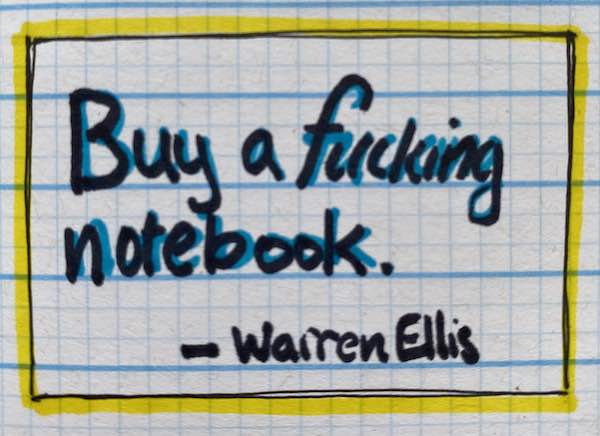 Buy a fucking
notebook.
- Warren Ellis